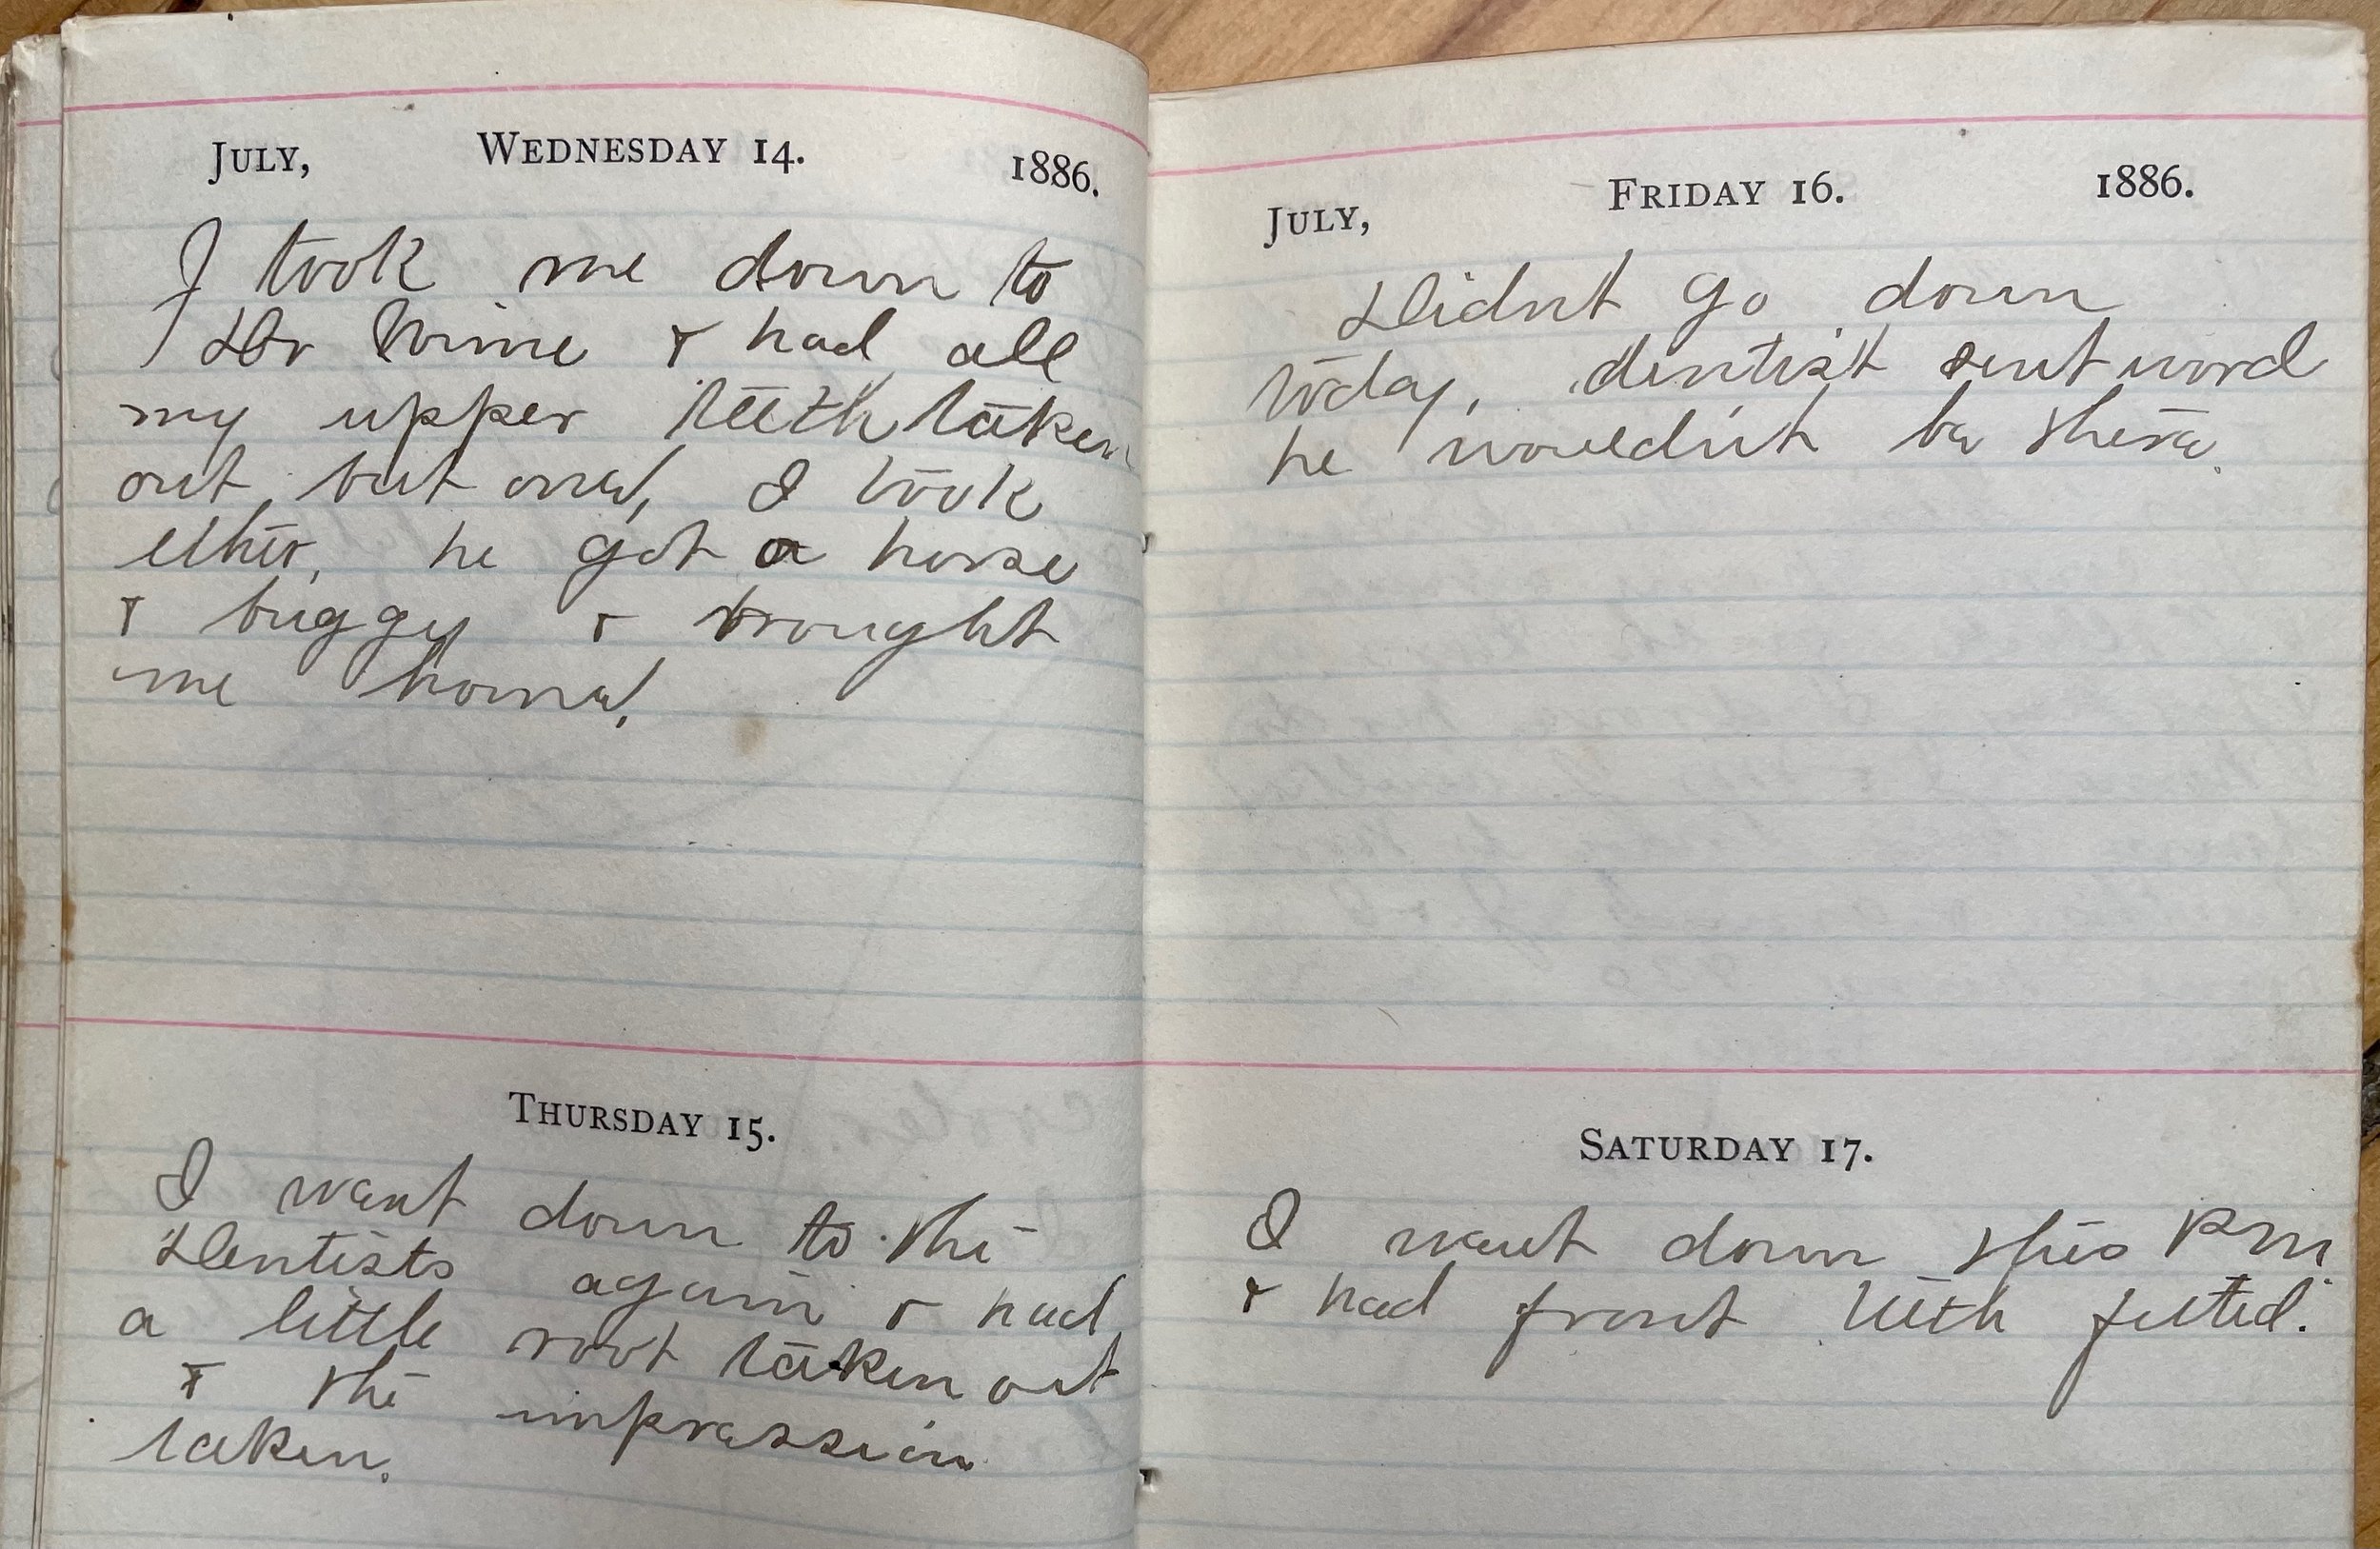 JULY, WEDNESDAY 14. 1886.
J took me down to
Dr & had all
my upper teeth taken
out but one, I took
ether, he got a horse
& buggy & brought
me home.
THURSDAY 15.
I went down to the
Dentists again & had
a little root taken out
& the impression
taken.
JULY, FRIDAY 16. 1886.
Didn't go down
today, dentist sent word
he wouldn't be there.
SATURDAY 17.
I went down this PM
& had front teeth fitted.